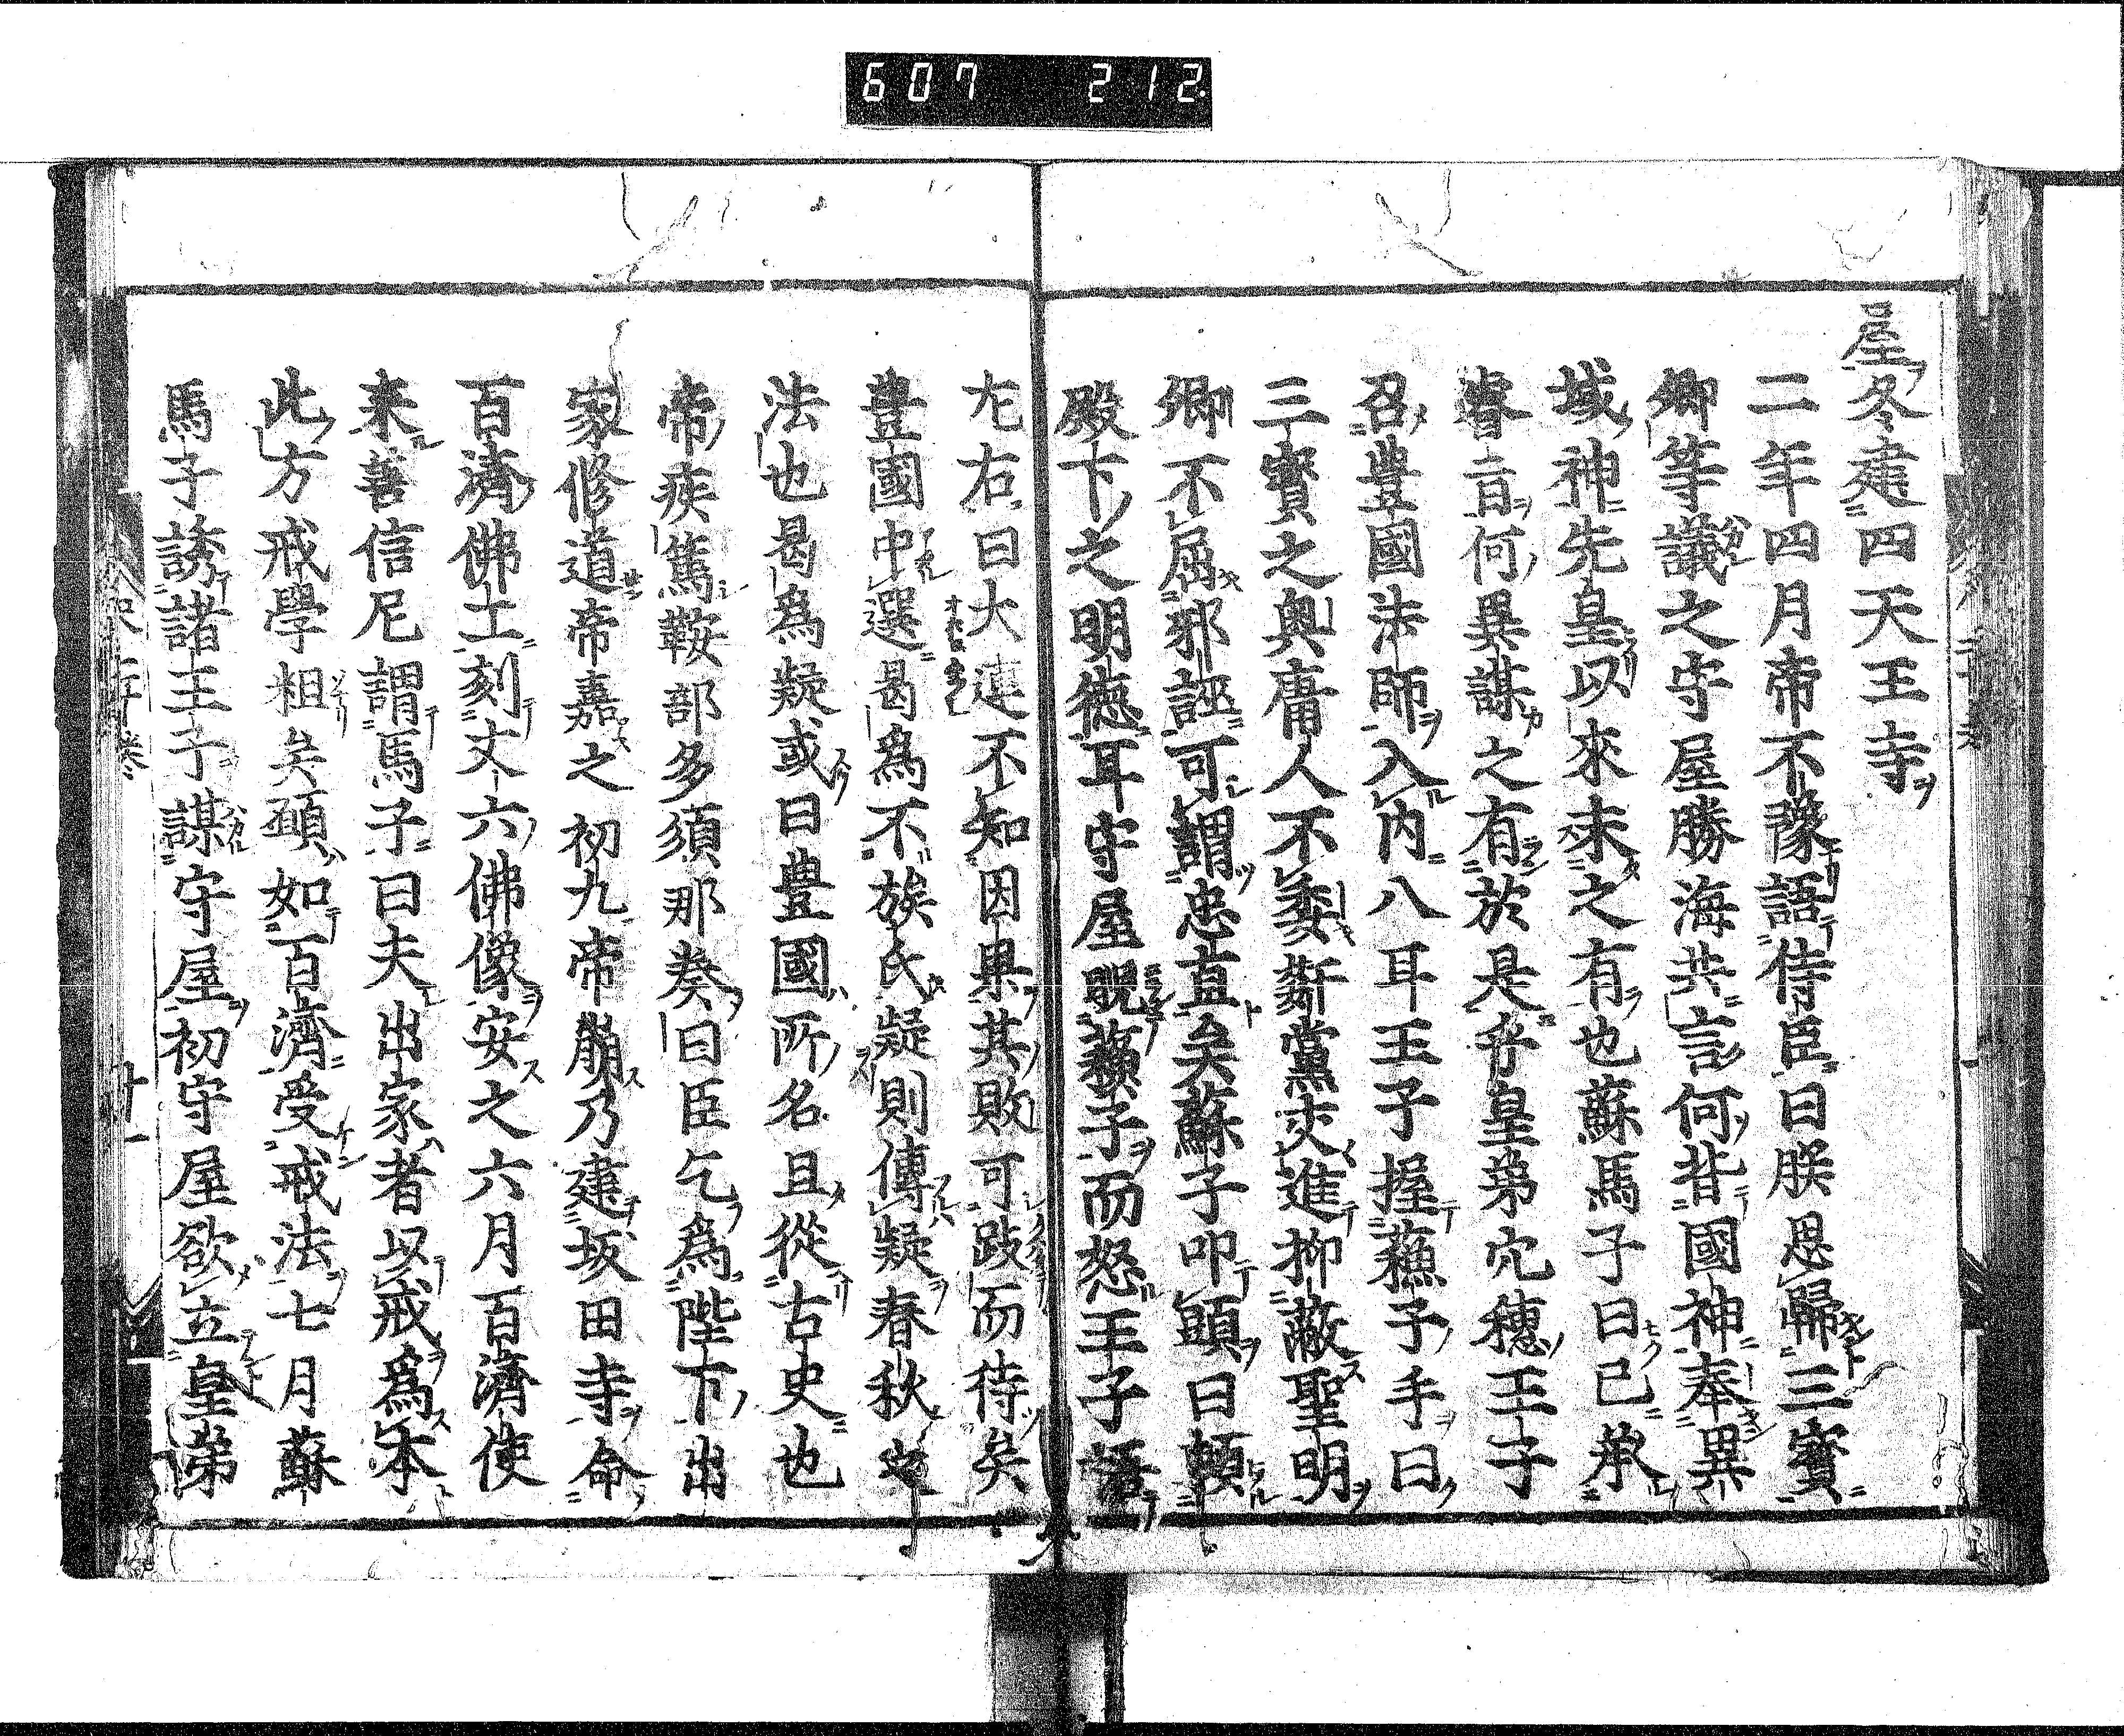 607 212
屋冬建四天王寺
二年四月帝不豫語侍臣曰朕思歸三寶
卿等議之守屋勝海共言何背國神奉異
域神先皇以來未之有也蘇馬子曰已承
睿旨何異謀之有於是乎皇弟穴穗王子
召豊國法師入内八耳王子握蘓子手曰
三寶之奧庸人不委斯黨夾進抑蔽聖明
卿不屈邪誣可謂忠直矣蘇子叩頭曰頼
殿下之明德耳守屋睨蘓子而怒王子語
左右曰大連不知因果其敗可跂而待矣
豊國中選曷爲不族氏疑則傳疑春秋之
法也曷爲疑或曰豊國所名且從古史也
帝疾篤鞍部多須那奏曰臣乞爲陛下出
家修道帝嘉之初九帝崩乃建坂田寺命
百濟佛工刻丈六佛像安之六月百濟使
来善信尼謂馬子曰夫出家者以戒爲本
此方戒學粗矣願如百濟受戒法七月蘇
馬子誘諸王子謀守屋初守屋欲立皇弟
十一